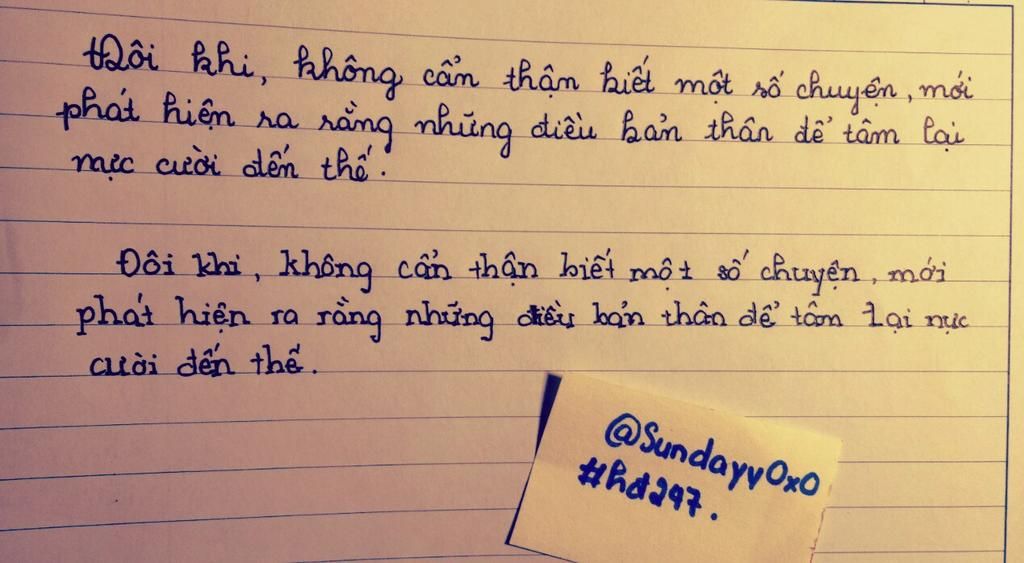 Đôi khi, không cẩn thận biết một số chuyện, mới
phát hiện ra rằng những điều bản thân để tâm lại
nực cười đến thế.
Đôi khi, không cẩn thận biết một số chuyện, mới
phát hiện ra rằng những điều bản thân để tâm lại nực
cười đến thế.
@SundayyOxO
#hd247.